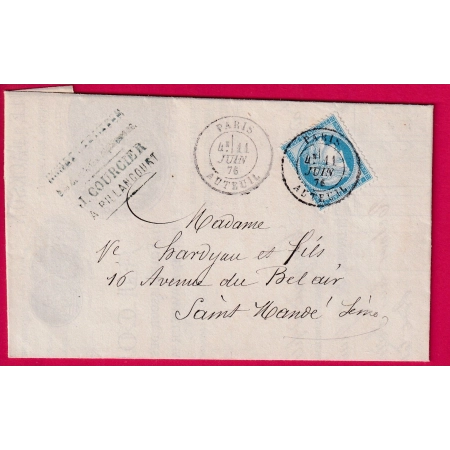 J. COURCIER
A BILLANCOURT
PARIS
4E 11
JUIN
76
AUTEUIL
PARIS
4E 11
JUIN
76
AUTEUIL
Madame
Ve Hardyau et fils
16 Avenue du Bel air
Saint Mandé Seine